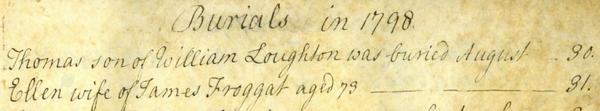 Burials in 1798.
Thomas son of William Loughton was buried August 30.
Ellen wife of James Froggat aged 73 — — — — 31.